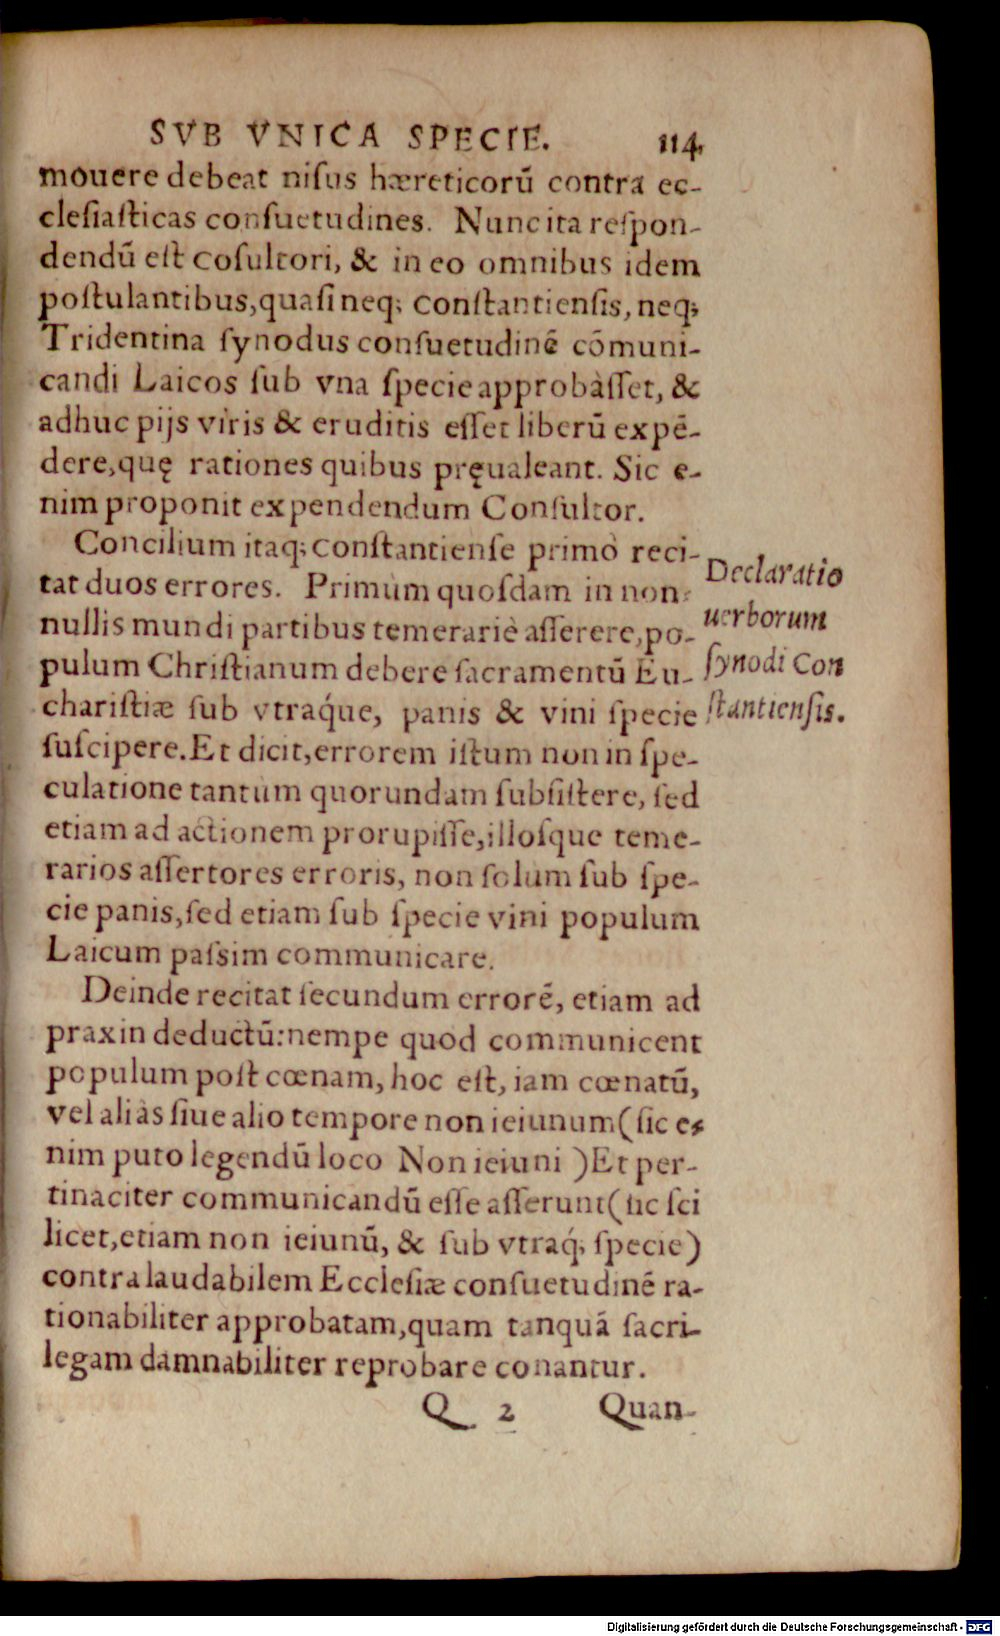 SVB VNICA SPECIE. 114.
mouere debeat niſus hæreticorũ contra ec-
cleſiaſticas conſuetudines. Nunc ita reſpon-
dendũ eſt cõſultori, & in eo omnibus idem
poſtulantibus, quaſi neq; conſtantienſis, neq;
Tridentina ſynodus conſuetudinẽ cõmuni-
candi Laicos ſub vna ſpecie approbàſſet, &
adhuc pijs viris & eruditis eſſet liberũ expẽ-
dere, quę rationes quibus pręualeant. Sic e-
nim proponit expendendum Conſultor.
Concilium itaq; conſtantienſe primò reci-
tat duos errores. Primùm quoſdam in non-
nullis mundi partibus temerariè aſſerere, po-
pulum Chriſtianum debere ſacramentũ Eu-
chariſtiæ ſub vtraq́ue, panis & vini ſpecie
ſuſcipere. Et dicit, errorem iſtum non in ſpe-
culatione tantùm quorundam ſubſiſtere, ſed
etiam ad actionem prorupiſſe, illoſque teme-
rarios aſſertores erroris, non ſolum ſub ſpe-
cie panis, ſed etiam ſub ſpecie vini populum
Laicum paſsim communicare.
Declaratio
uerborum
ſynodi Con
ſtantienſis.
Deinde recitat ſecundum errorẽ, etiam ad
praxin deductũ: nempe quod communicent
populum poſt cœnam, hoc eſt, iam cœnatũ,
vel aliàs ſiue alio tempore non ieiunum (ſic e-
nim puto legendũ loco Non ieiuni) Et per-
tinaciter communicandũ eſſe aſſerunt (ſic ſci
licet, etiam non ieiunũ, & ſub vtraq́; ſpecie)
contra laudabilem Eccleſiæ conſuetudinẽ ra-
tionabiliter approbatam, quam tanquã ſacri-
legam damnabiliter reprobare conantur.
Q 2 Quan-
Digitalisierung gefördert durch die Deutsche Forschungsgemeinschaft - DFG